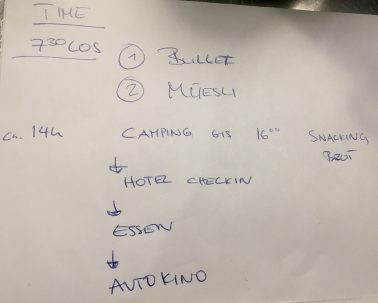 TIME
7³⁰ LOS
① BULLET
② MÜESLI
ca. 14h CAMPING BIS 16⁰⁰ SNACKING BROT
↓
HOTEL CHECKIN
↓
ESSEN
↓
AUTOKINO